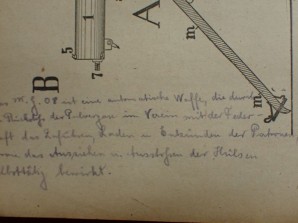 1
A
B
5
7
m
m
s M.G. 08 ist eine automatische Waffe, die durch
der Pulvergase im Verein mit der Feder-
aft das Zuführen, Laden u. Entzünden der Patrone
das Ausziehen u. Ausstoßen der Hülsen
bewirkt.